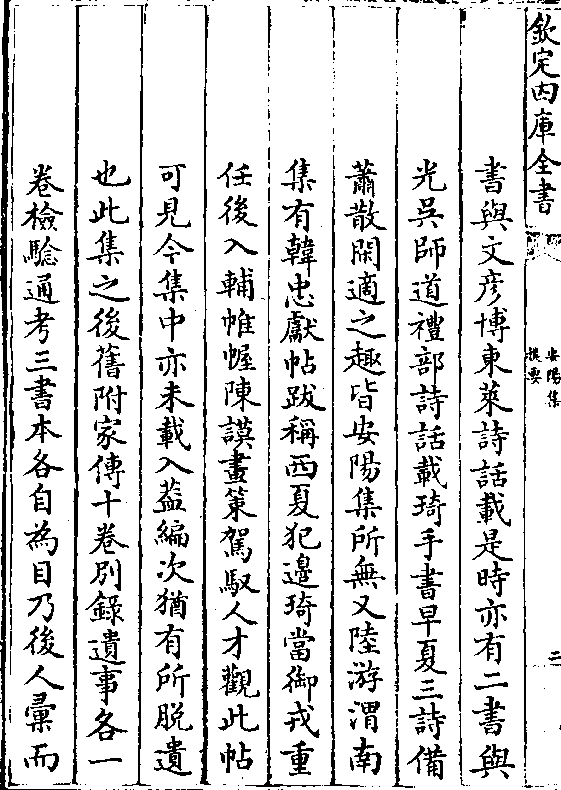 欽定四庫全書
安陽集
提要
二
書與文彦博東萊詩話載是時亦有二書與
光吳師道禮部詩話載琦手書早夏三詩備
蕭散閑適之趣皆安陽集所無又陸游渭南
集有韓忠獻帖跋稱西夏犯邉琦當御戎重
任後入輔帷幄陳謨畫策駕馭人才觀此帖
可見今集中亦未載入葢編次猶有所脱遺
也此集之後舊附家傳十卷别錄遺事各一
卷檢驗通考三書本各自為目乃後人彚而